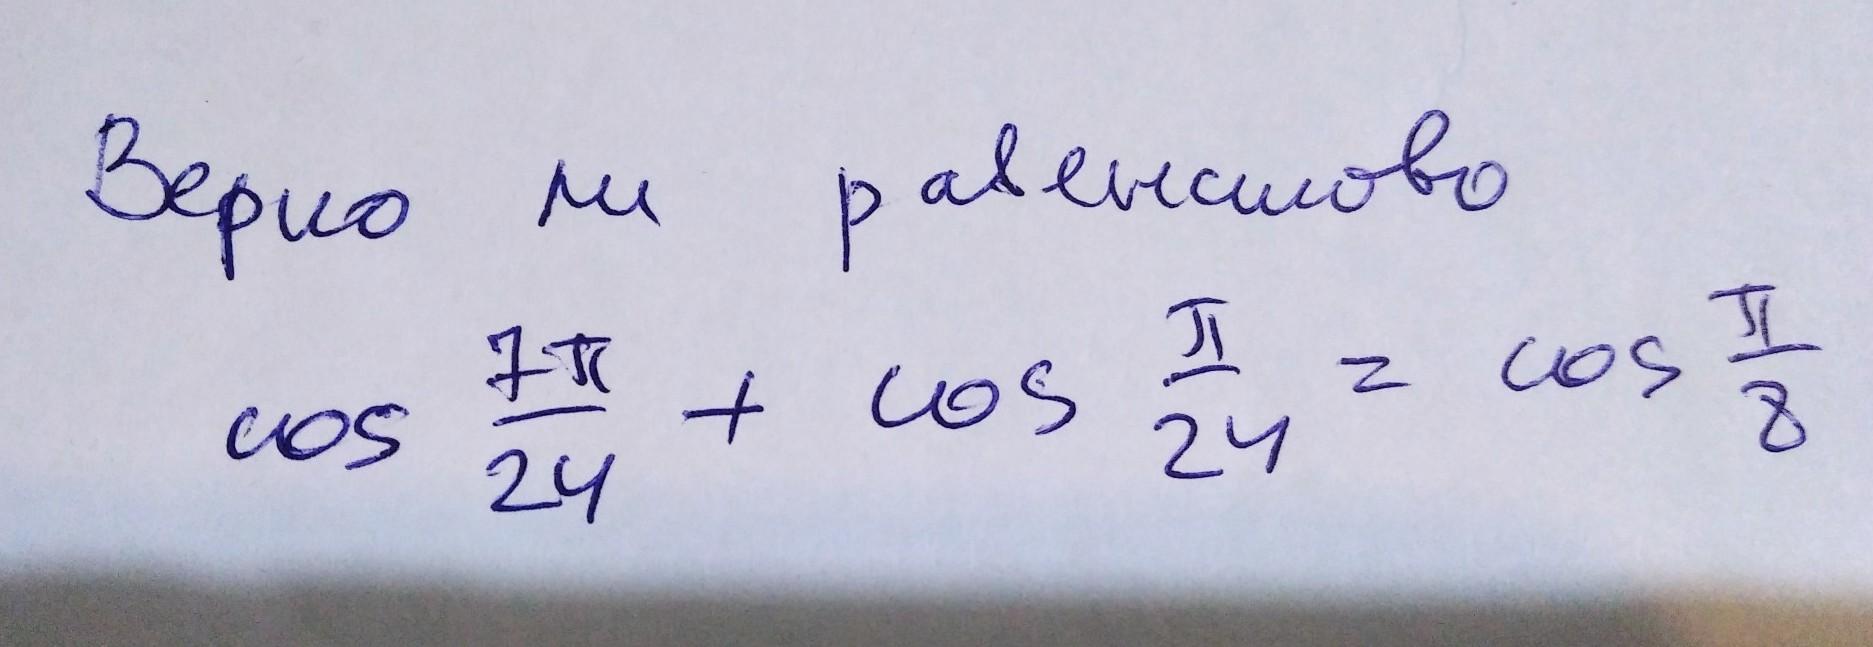 Верно ли равенство
cos 7π/24 + cos π/24 = cos π/8